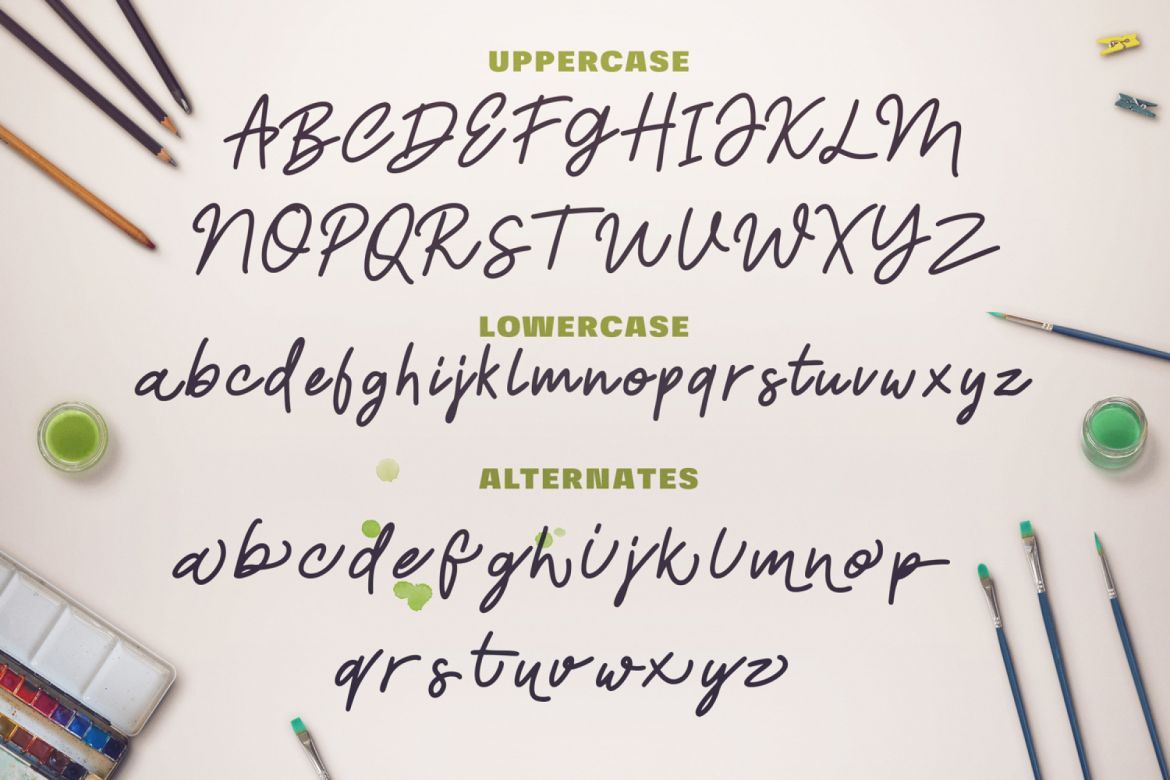 UPPERCASE
ABCDEFGHIJKLM
NOPQRSTUVWXYZ
LOWERCASE
abcdefghijklmnopqrstuvwxyz
ALTERNATES
abcdefghijklmnop
qrstuvwxyz